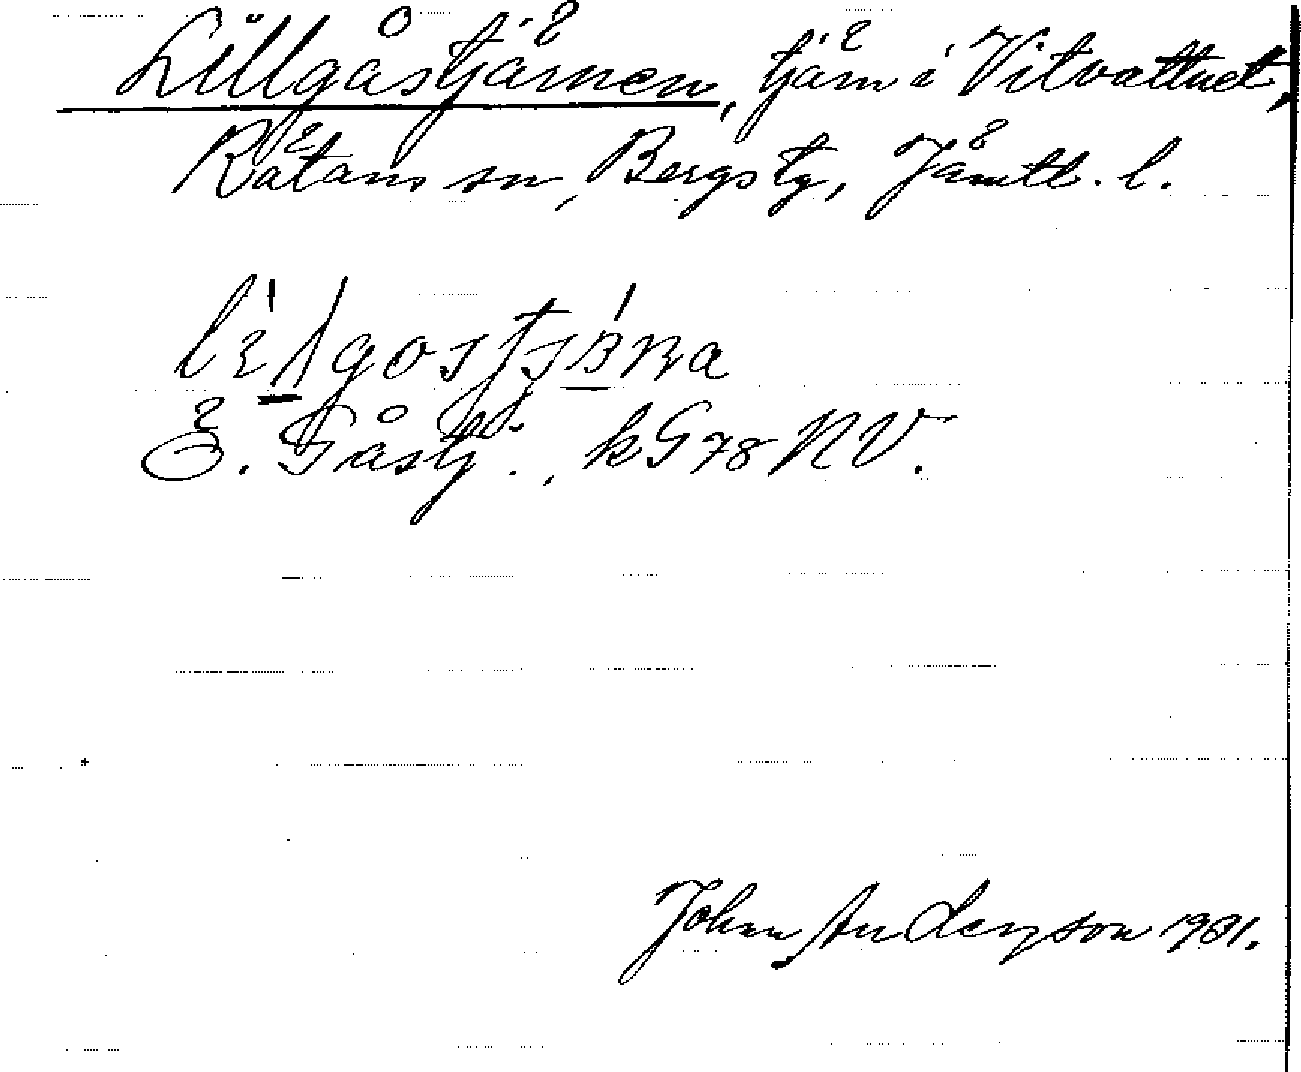 Lillgåstjärnen, tjärn i Vitvattnet,
Rätans sn, Bergs tg, Jämtl. l.
Ö. Gåstj., kG78 NV.
Johan Anderson 1931.